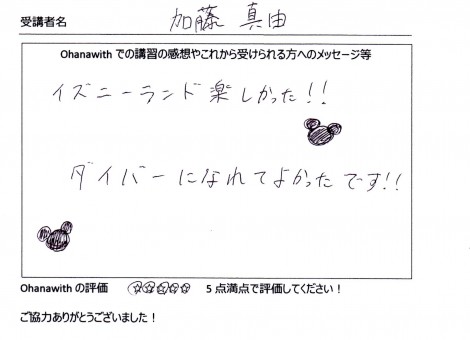 受講者名 加藤 真由
Ohanawith での講習の感想やこれから受けられる方へのメッセージ等
イズニーランド楽しかった!!
ダイバーになれてよかったです!!
Ohanawith の評価 ☆☆☆☆☆ 5 点満点で評価してください！
ご協力ありがとうございました！